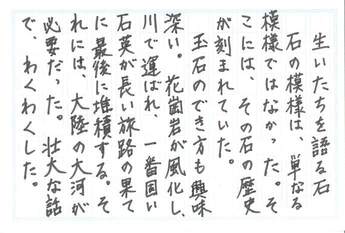 生いたちを語る石
石の模様は、単なる
模様ではなかった。そ
こには、その石の歴史
が刻まれていた。
玉石のでき方も興味
深い。花崗岩が風化し、
川で運ばれ、一番固い
石英が長い旅路の果て
に最後に堆積する。そ
れには、大陸の大河が
必要だった。壮大な話
で、わくわくした。